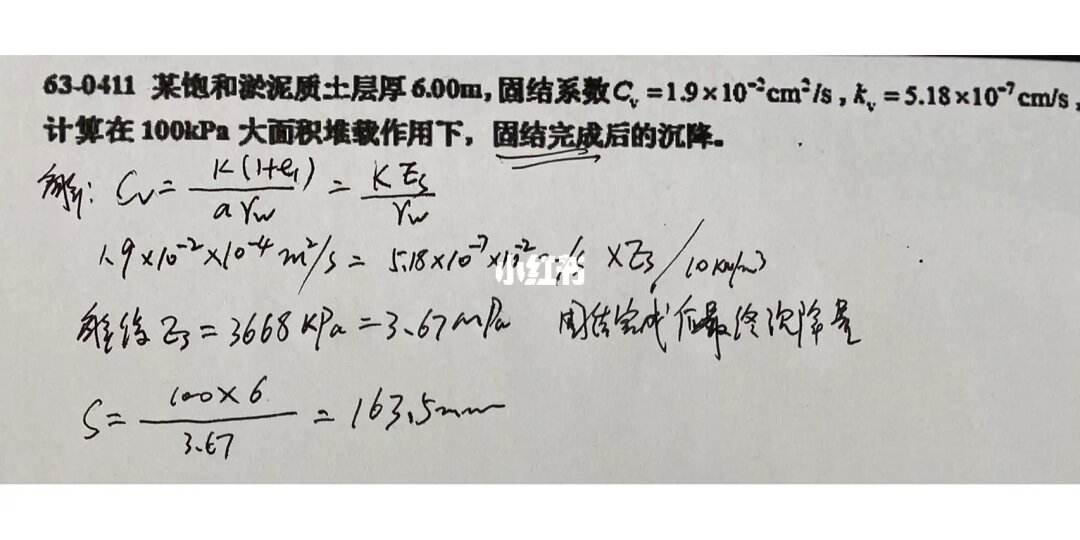 63-0411 某饱和淤泥质土层厚6.00m,固结系数Cᵥ=1.9×10⁻²cm²/s,kᵥ=5.18×10⁻⁷cm/s,
计算在100kPa大面积堆载作用下,固结完成后的沉降。
解: Cv = K(1+e₁)/aγw = KEs/γw
1.9×10⁻²×10⁻⁴m²/s = 5.18×10⁻⁷×10⁻²m/s×Es/10kN/m³
小红书
解得Es=3668kPa=3.67mPa 固结完成后最终沉降量
S= 100×6/3.67 = 163.5mm